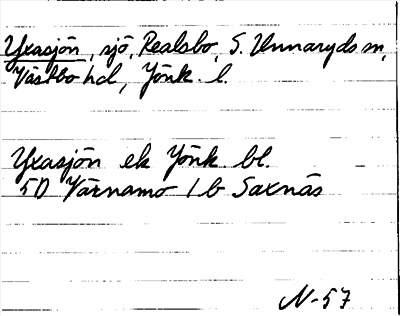 Yxasjön, sjö, Realsbo, S. Unnaryds sn,
Västbo hd, Jönk. l.
Yxasjön ek Jönk. bl.
5D Värnamo 1b Saxnäs
N-57